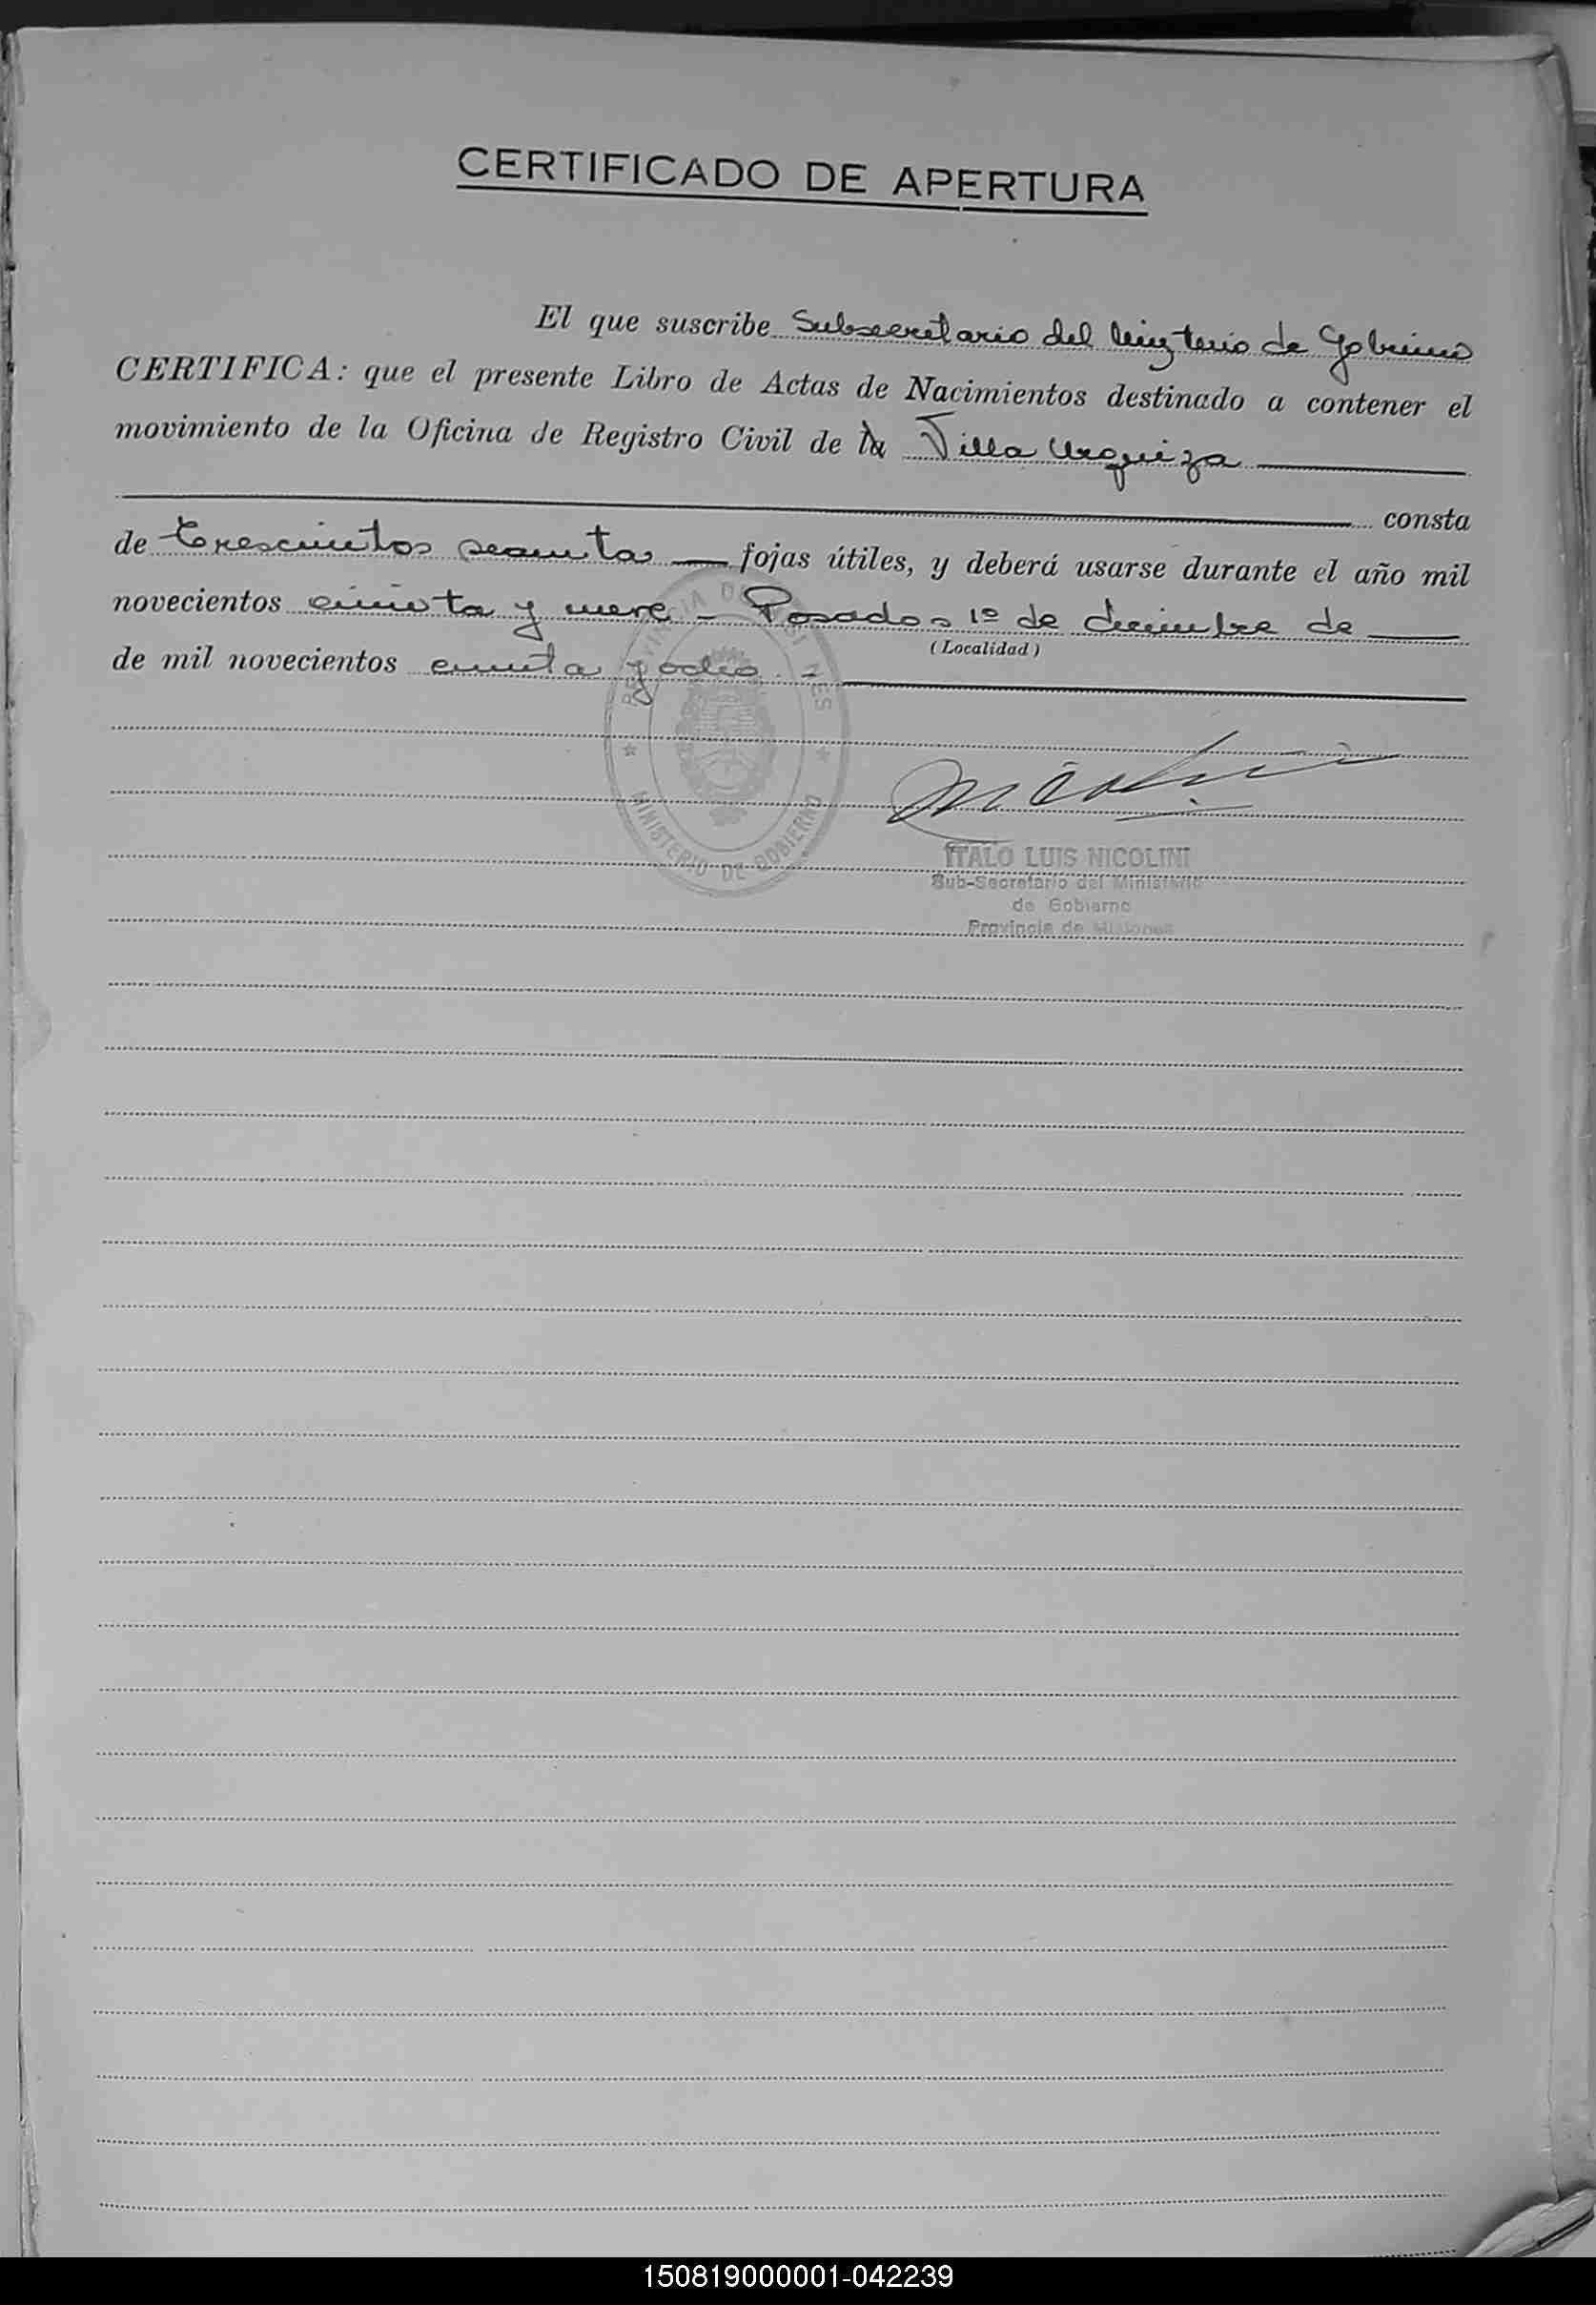 CERTIFICADO DE APERTURA
El que suscribe Subsecretario del Ministerio de Gobierno
CERTIFICA: que el presente Libro de Actas de Nacimientos destinado a contener el
movimiento de la Oficina de Registro Civil de la Villa Urquiza
consta
de trescientos sesenta fojas útiles, y deberá usarse durante el año mil
novecientos cincuenta y nueve - Posadas 1º de diciembre de
(Localidad)
de mil novecientos cincuenta y ocho. -
PROVINCIA DE MISIONES
MINISTERIO DE GOBIERNO
Nicolini
ITALO LUIS NICOLINI
Sub-Secretario del Ministerio
de Gobierno
Provincia de Misiones
150819000001-042239